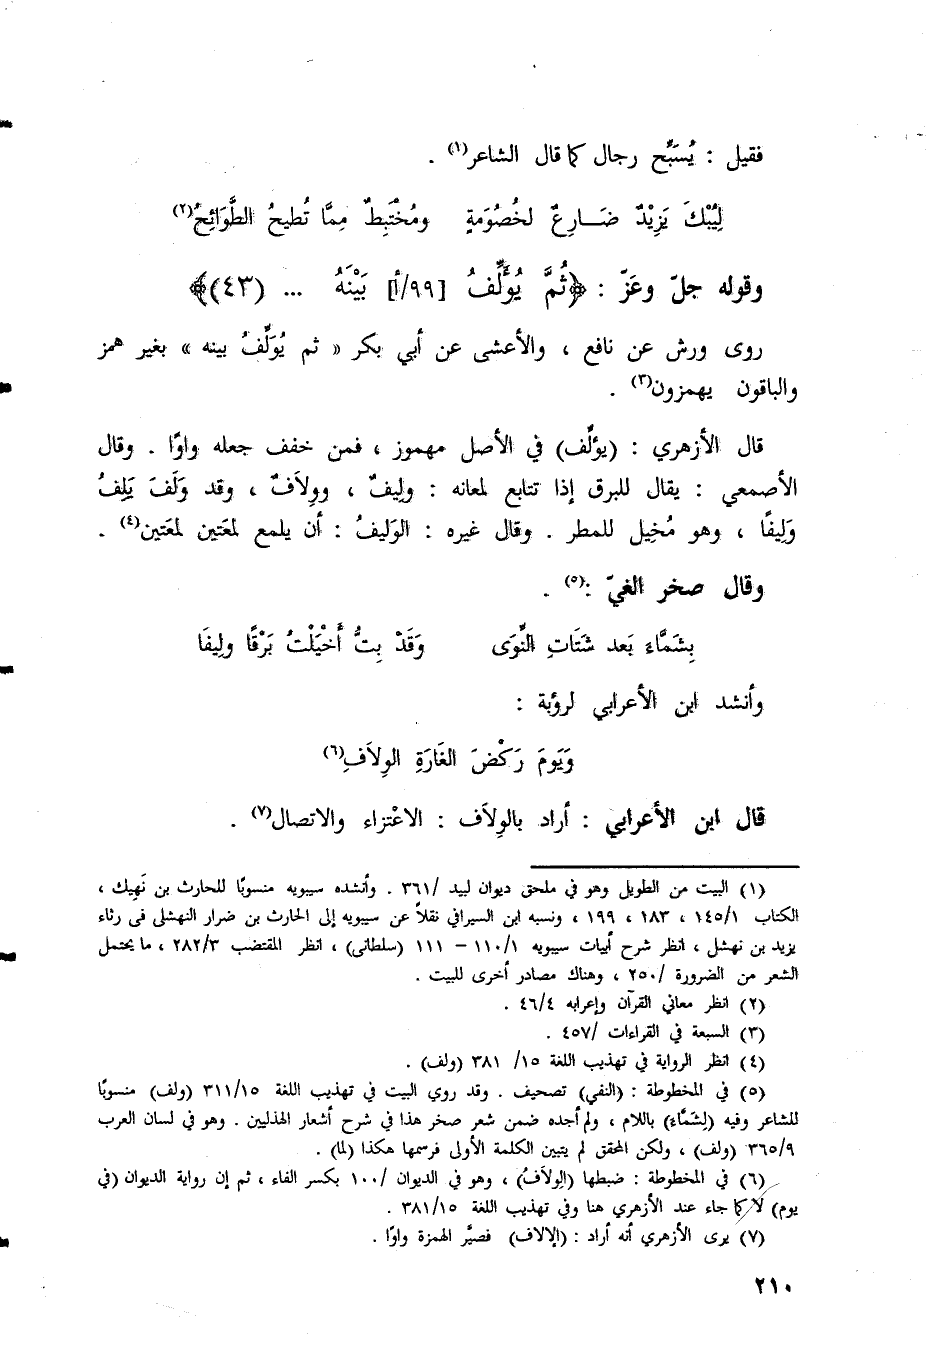 فقيل : يُسَبِّح رجال كما قال الشاعر(١) .
لِيُبْكَ يَزِيْدٌ ضَــارِعٌ لخُصُوَمَةٍ ومُخْتَبِطٌ مِمَّا تُطيحُ الطَّوَائِحُ(٢)
وقوله جلّ وعَزّ : ﴿ثُمَّ يُؤَلِّفُ [٩٩/أ] بَيْنَهُ ... (٤٣)﴾
روى ورش عن نافع ، والأعشى عن أبي بكر « ثم يُوَلِّفُ بينه » بغير همز
والباقون يهمزون(٣) .
قال الأزهري : (يؤلِّف) في الأصل مهموز ، فمن خفف جعله واوًا . وقال
الأصمعي : يقال للبرق إذا تتابع لمعانه : ولِيفٌ ، وولاَفٌ ، وقد وَلَفَ يَلِفُ
وَلِيفًا ، وهو مُخِيل للمطر . وقال غيره : الوَليفُ : أن يلمع لمعَتين لمعَتين(٤) .
وقال صخر الغيّ :(٥) .
بِشَمَّاءَ بَعد شَتَاتِ النَّوَى وَقَدْ بِتُّ أَخْيَلْتُ بَرْقًا ولِيفَا
وأنشد ابن الأعرابي لرؤبة :
وَيَومَ رَكْضَ الغَارَةِ الوِلاَفِ(٦)
قال ابن الأعرابي : أراد بالوِلاَف : الاعْتزاء والاتصال(٧) .
(١) البيت من الطويل وهو في ملحق ديوان لبيد /٣٦١ . وأنشده سيبويه منسوبًا للحارث بن نَهِيك ،
الكتاب ١٤٥/١ ، ١٨٣ ، ١٩٩ ، ونسبه ابن السيرافي نقلاً عن سيبويه إلى الحارث بن ضرار النهشلى فى رثاء
يزيد بن نهشل ، انظر شرح أبيات سيبويه ١١٠/١ – ١١١ (سلطانى) ، انظر المقتضب ٢٨٢/٣ ، ما يحتمل
الشعر من الضرورة /٢٥٠ ، وهناك مصادر أخرى للبيت .
(٢) انظر معاني القرآن وإعرابه ٤٦/٤ .
(٣) السبعة في القراءات /٤٥٧ .
(٤) انظر الرواية في تهذيب اللغة ١٥/ ٣٨١ (ولف) .
(٥) في المخطوطة : (النفي) تصحيف . وقد روي البيت في تهذيب اللغة ٣١١/١٥ (ولف) منسوبًا
للشاعر وفيه (لِشَمَّاءَ) باللام ، ولم أجده ضمن شعر صخر هذا في شرح أشعار الهذليين . وهو في لسان العرب
٣٦٥/٩ (ولف) ، ولكن المحقق لم يتبين الكلمة الأولى فرسمها هكذا (لما) .
(٦) في المخطوطة : ضبطها (الوِلاَفُ) ، وهو في الديوان /١٠٠ بكسر الفاء ، ثم إن رواية الديوان (في
يوم) لا كما جاء عند الأزهري هنا وفي تهذيب اللغة ٣٨١/١٥ .
(٧) يرى الأزهري أنه أراد : (الإلاف) فصيَّر الهمزة واوًا .
٢١٠